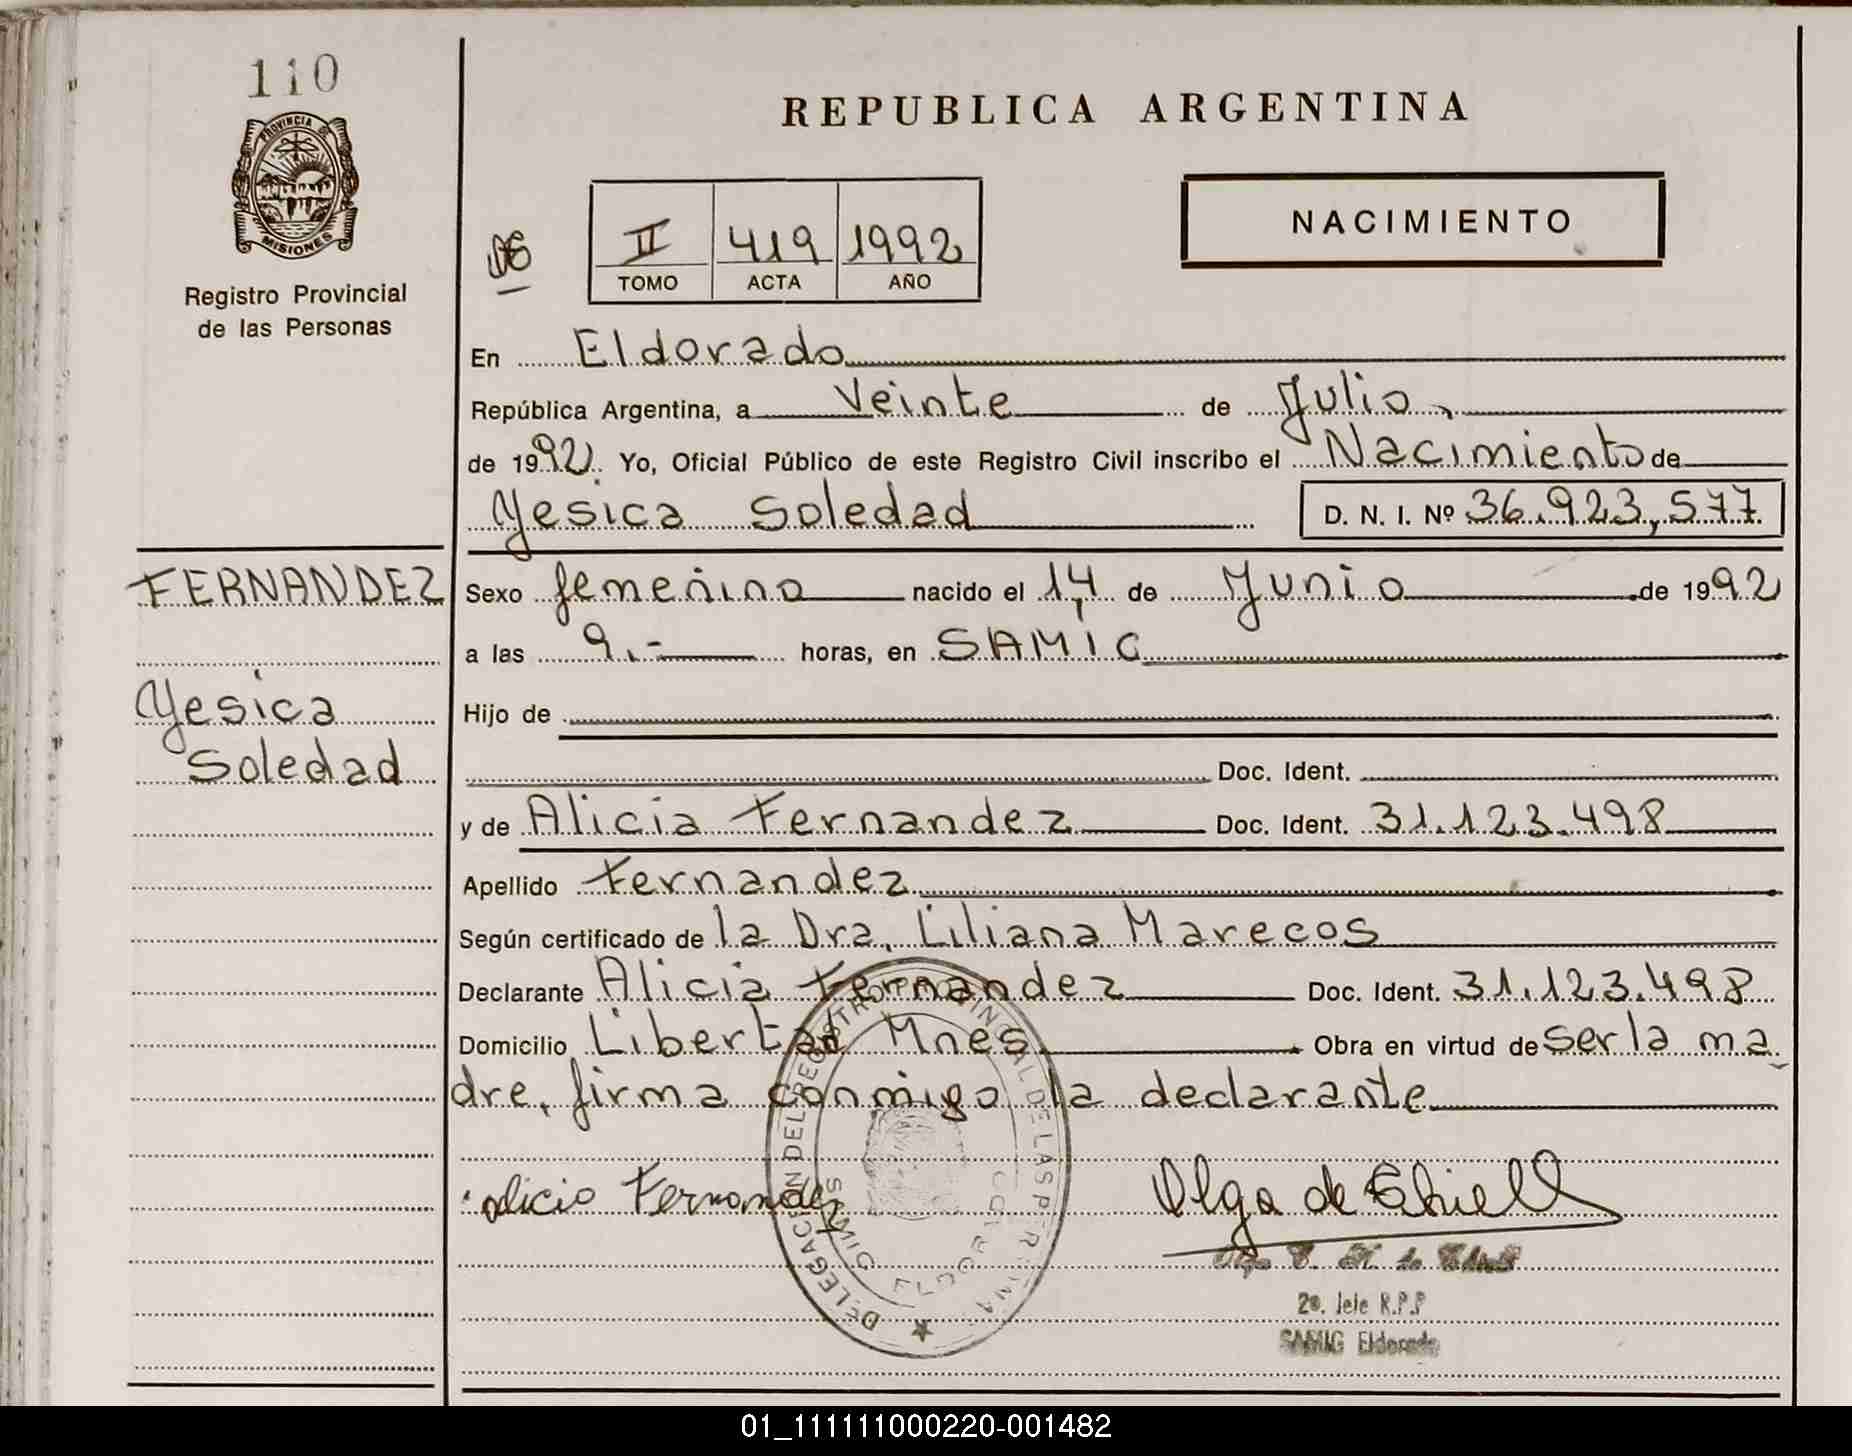 110
PROVINCIA DE
MISIONES
Registro Provincial
de las Personas
REPUBLICA ARGENTINA
NACIMIENTO
II 419 1992
TOMO ACTA AÑO
En Eldorado
República Argentina, a Veinte de Julio,
de 1992. Yo, Oficial Público de este Registro Civil inscribo el Nacimiento de
Yesica Soledad D. N. I. Nº 36.923,577
FERNANDEZ
Yesica
Soledad
Sexo femenino nacido el 14 de Junio de 1992
a las 9.- horas, en SAMIC
Hijo de
Doc. Ident.
y de Alicia Fernandez Doc. Ident. 31.123.498
Apellido Fernandez
Según certificado de la Dra. Liliana Marecos
Declarante Alicia Fernandez Doc. Ident. 31.123.498
Domicilio Libertad Mnes. Obra en virtud de ser la ma
dre, firma conmigo la declarante
alicio Fernandez Olga de Ehiell
DELEGACION DEL REGISTRO PROVINCIAL DE LAS PERSONAS
2º. Jefe R.P.P
SAMIC Eldorado
01_111111000220-001482